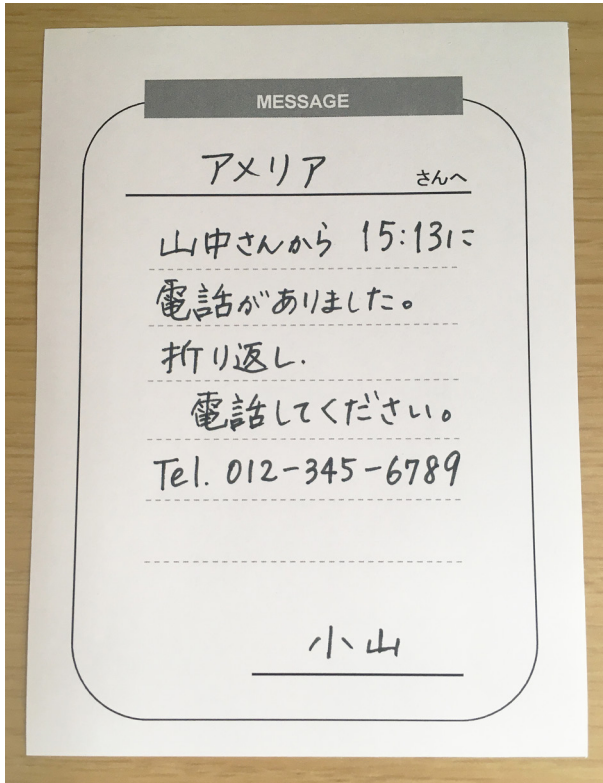 MESSAGE
アメリア さんへ
山中さんから 15:13に
電話がありました。
折り返し、
電話してください。
Tel. 012-345-6789
小山